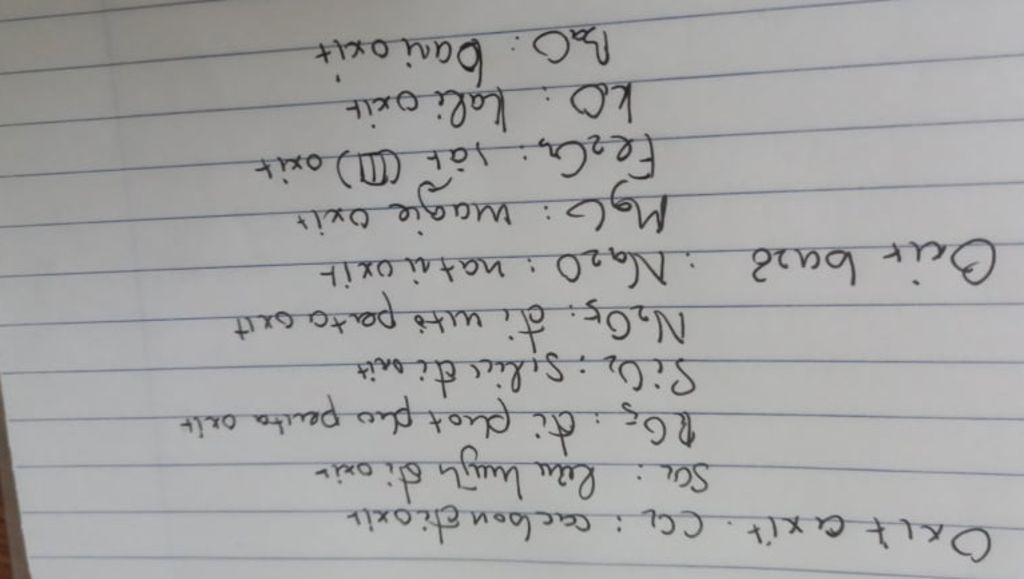 Oxit axit: CO2: cacbon đioxit
SO2: lưu huỳnh đioxit
P2O5: đi phot pho penta oxit
SiO2: Silic đi oxit
N2O5: đi nitơ penta oxit
Oxit bazơ: Na2O: natri oxit
MgO: magie oxit
Fe2O3: sắt (III) oxit
KO: kali oxit
BaO: bari oxit